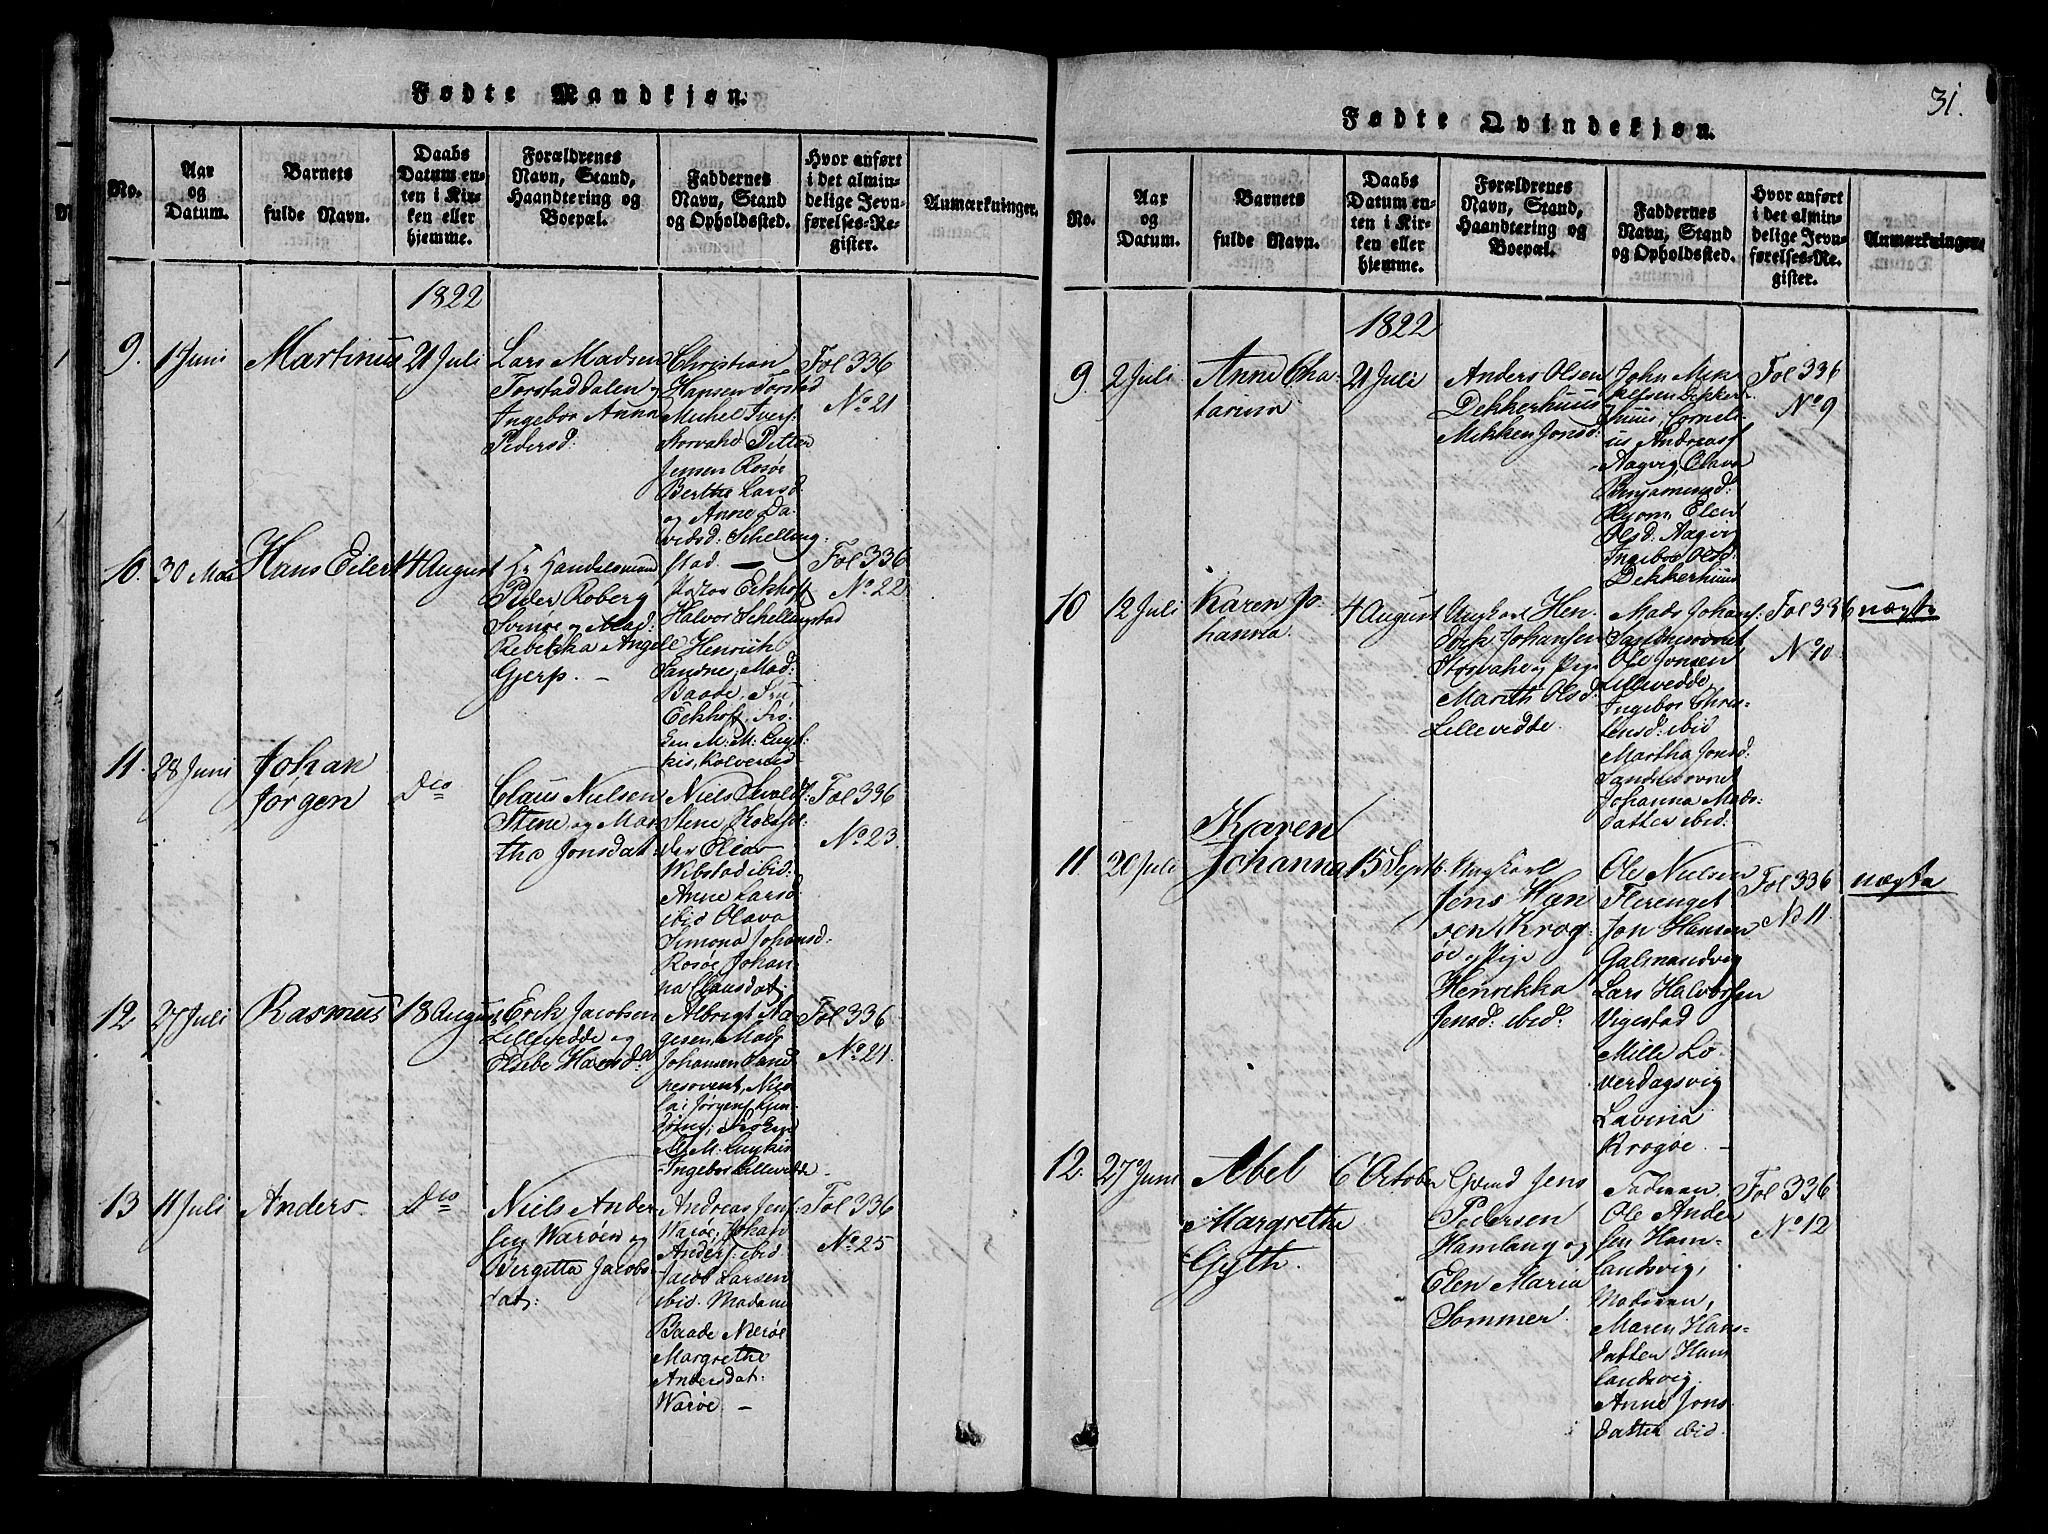 Fødte Mandkjøn.
No.
Aar
og
Datum.
Barnets
fulde Navn.
Daabs
Datum en-
ten i Kir-
ken eller
hjemme.
Forældrenes
Navn, Stand,
Haandtering og
Boepæl.
Faddernes
Navn, Stand
og Opholdssted.
Hvor anført
i det almin-
delige Jevn-
førelses-Re-
gister.
Anmærkninger.
1822
9.
1 Juni
Martinus
21 Juli
Lars Madsen
Torstad dalen og
Ingebor Anna
Pedersd.
Christian
Hansen Torstad
Michel Iversf.
Storvahe Petter
Jensen Rosøe
Berthe Larsd.
og Anne Da-
vidsd: Schelling-
stad. —
Fol 336
No 21
10.
30 Mai
Hans Eiler
4 August
Hr Handelsmand
Peder Roberg
Svinøe og Mad:
Rebekka Angell
Gjerp. —
Pastor Eckhoff
Halvor Schellingstad
Henrich
Sandnes, Mad:
Baade, Fru
Eckhoff, Frø-
ken M: M: Luyt-
kis, Kolvereid
Fol 336
No 22
11.
28 Juni
Johan
Jørgen
Dco
Claus Nielsen
Stene og Mar-
tha Jonsdat:
Niels
Stene
Elias
Wibstad ibid:
Anne Larsd
ibid Olava
Simona Johansd.
Rosøe, Johan-
na Clausdat:
Fol 336
No 23.
12
27 Juli
Rasmus
18 August
Erik Jacobsen
Lillevedde og
Elsebe Hansda:
Albrigt Aa-
gesen, Mads
Johansen Sand
nesovent, Nico-
lai Jørgens
Frøken
M. M. Luytkis
Ingebor Lillevedde —
Fol 336
No 24.
13
11 Juli
Anders —
Dco
Niels Ander
sen Warøen og
Birgitta Jacobs-
dat:
Andreas Jens.
Warøe, Johan
Anders. ibid.
Jacob Larsen
ibid. Madame
Baade Nærøe
Margrethe
Andersdat:
Warøe. —
Fol 336
No 25
31.
Fødte Qvindekjøn.
No.
Aar
og
Datum.
Barnets
fulde Navn.
Daabs
Datum en-
ten i Kir-
ken eller
hjemme.
Forældrenes
Navn, Stand,
Haandtering og
Boepæl.
Faddernes
Navn, Stand
og Opholdssted.
Hvor anført
i det almin-
delige Jevn-
førelses-Re-
gister.
Anmærkninger.
1822
9
2 Juli
Anne Cha-
tarina
21 Juli
Anders Olsen
Dekkerhuus
Mikken Jonsd:
John Mik
kelsen Dekker-
huus, Corneli-
us Andreasf
Aagvig, Olava
Benjaminsd:
Ryom, Elen
Olsd: Aagvig
Ingebor Olsd:
Dekkerhuus
Fol 336
No 9
10
12 Juli
Karen Jo-
hanna.
4 August
Ungkarl Hen-
drik Johansen
Storvahe og Pige
Marith Olsd:
Lillevedde.
Mads Johans:
Sandnesovnet
Ole Jonsen
Lillevedde,
Ingebor Chris-
tensd: ibid
Martha Jonsd:
Sandnesovnet
Johanna Mads-
datter ibid:
Fol 336
No 10.
uægte
11.
20 Juli
Karen
Johanna
15 Septb.
Ungkarl
Jens Han
sen Krog-
øe og Pige
Henrikka
Jensd: ibid:
Ole Nielsen
Flerenget
Jon Hansen
Galmandvig
Lars Halvorsen
Vigestad
Mille Lo-
verdagsvig
Lavina
Krogøe. —
Fol 336
No 11.
uægte
12.
27 Juni
Abel
Margrethe
Gyth.
6 October
Jens
Pedersen
Hamlang og
Elen Maria
Sommer.
Faderen.
Ole Ander
sen Ham-
landsvig,
Moderen,
Maren Hans-
datter Ham
landsvig.
Anne Jons
datter ibid.
Fol 336
No 12